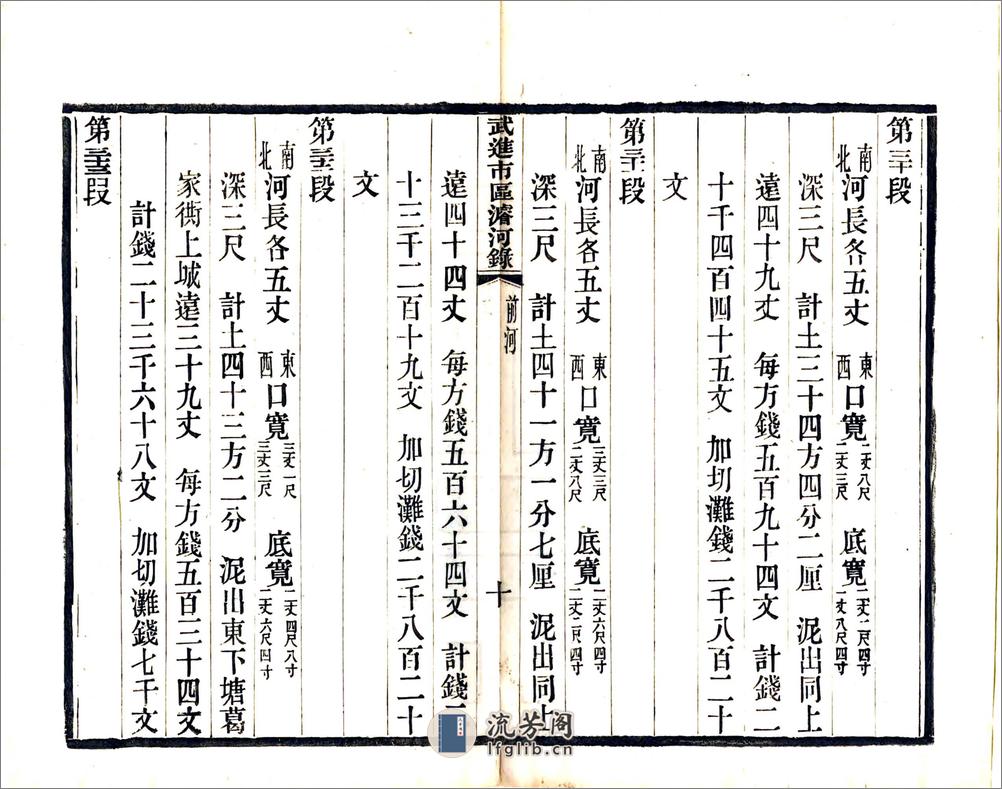 第三十段
南北河長各五丈　東西口寬二丈八尺二丈三尺　底寬二丈二尺四寸一丈八尺四寸
深三尺　計土三十四方四分二厘　泥出同上
遠四十九丈　每方錢五百九十四文　計錢二
十千四百四十五文　加切灘錢二千八百二十
文
第三十一段
南北河長各五丈　東西口寬三丈三尺二丈八尺　底寬二丈六尺四寸二丈二尺四寸
深三尺　計土四十一方一分七厘　泥出同上
武進市區濬河錄　前河　十
遠四十四丈　每方錢五百六十四文　計錢二
十三千二百十九文　加切灘錢二千八百二十
文
第三十二段
南北河長各五丈　東西口寬三丈一尺三丈三尺　底寬二丈四尺八寸二丈六尺四寸
深三尺　計土四十三方二分　泥出東下塘葛
家衖上城遠三十九丈　每方錢五百三十四文
計錢二十三千六十八文　加切灘錢七千文
第三十三段
流芳阁
lfglib.cn